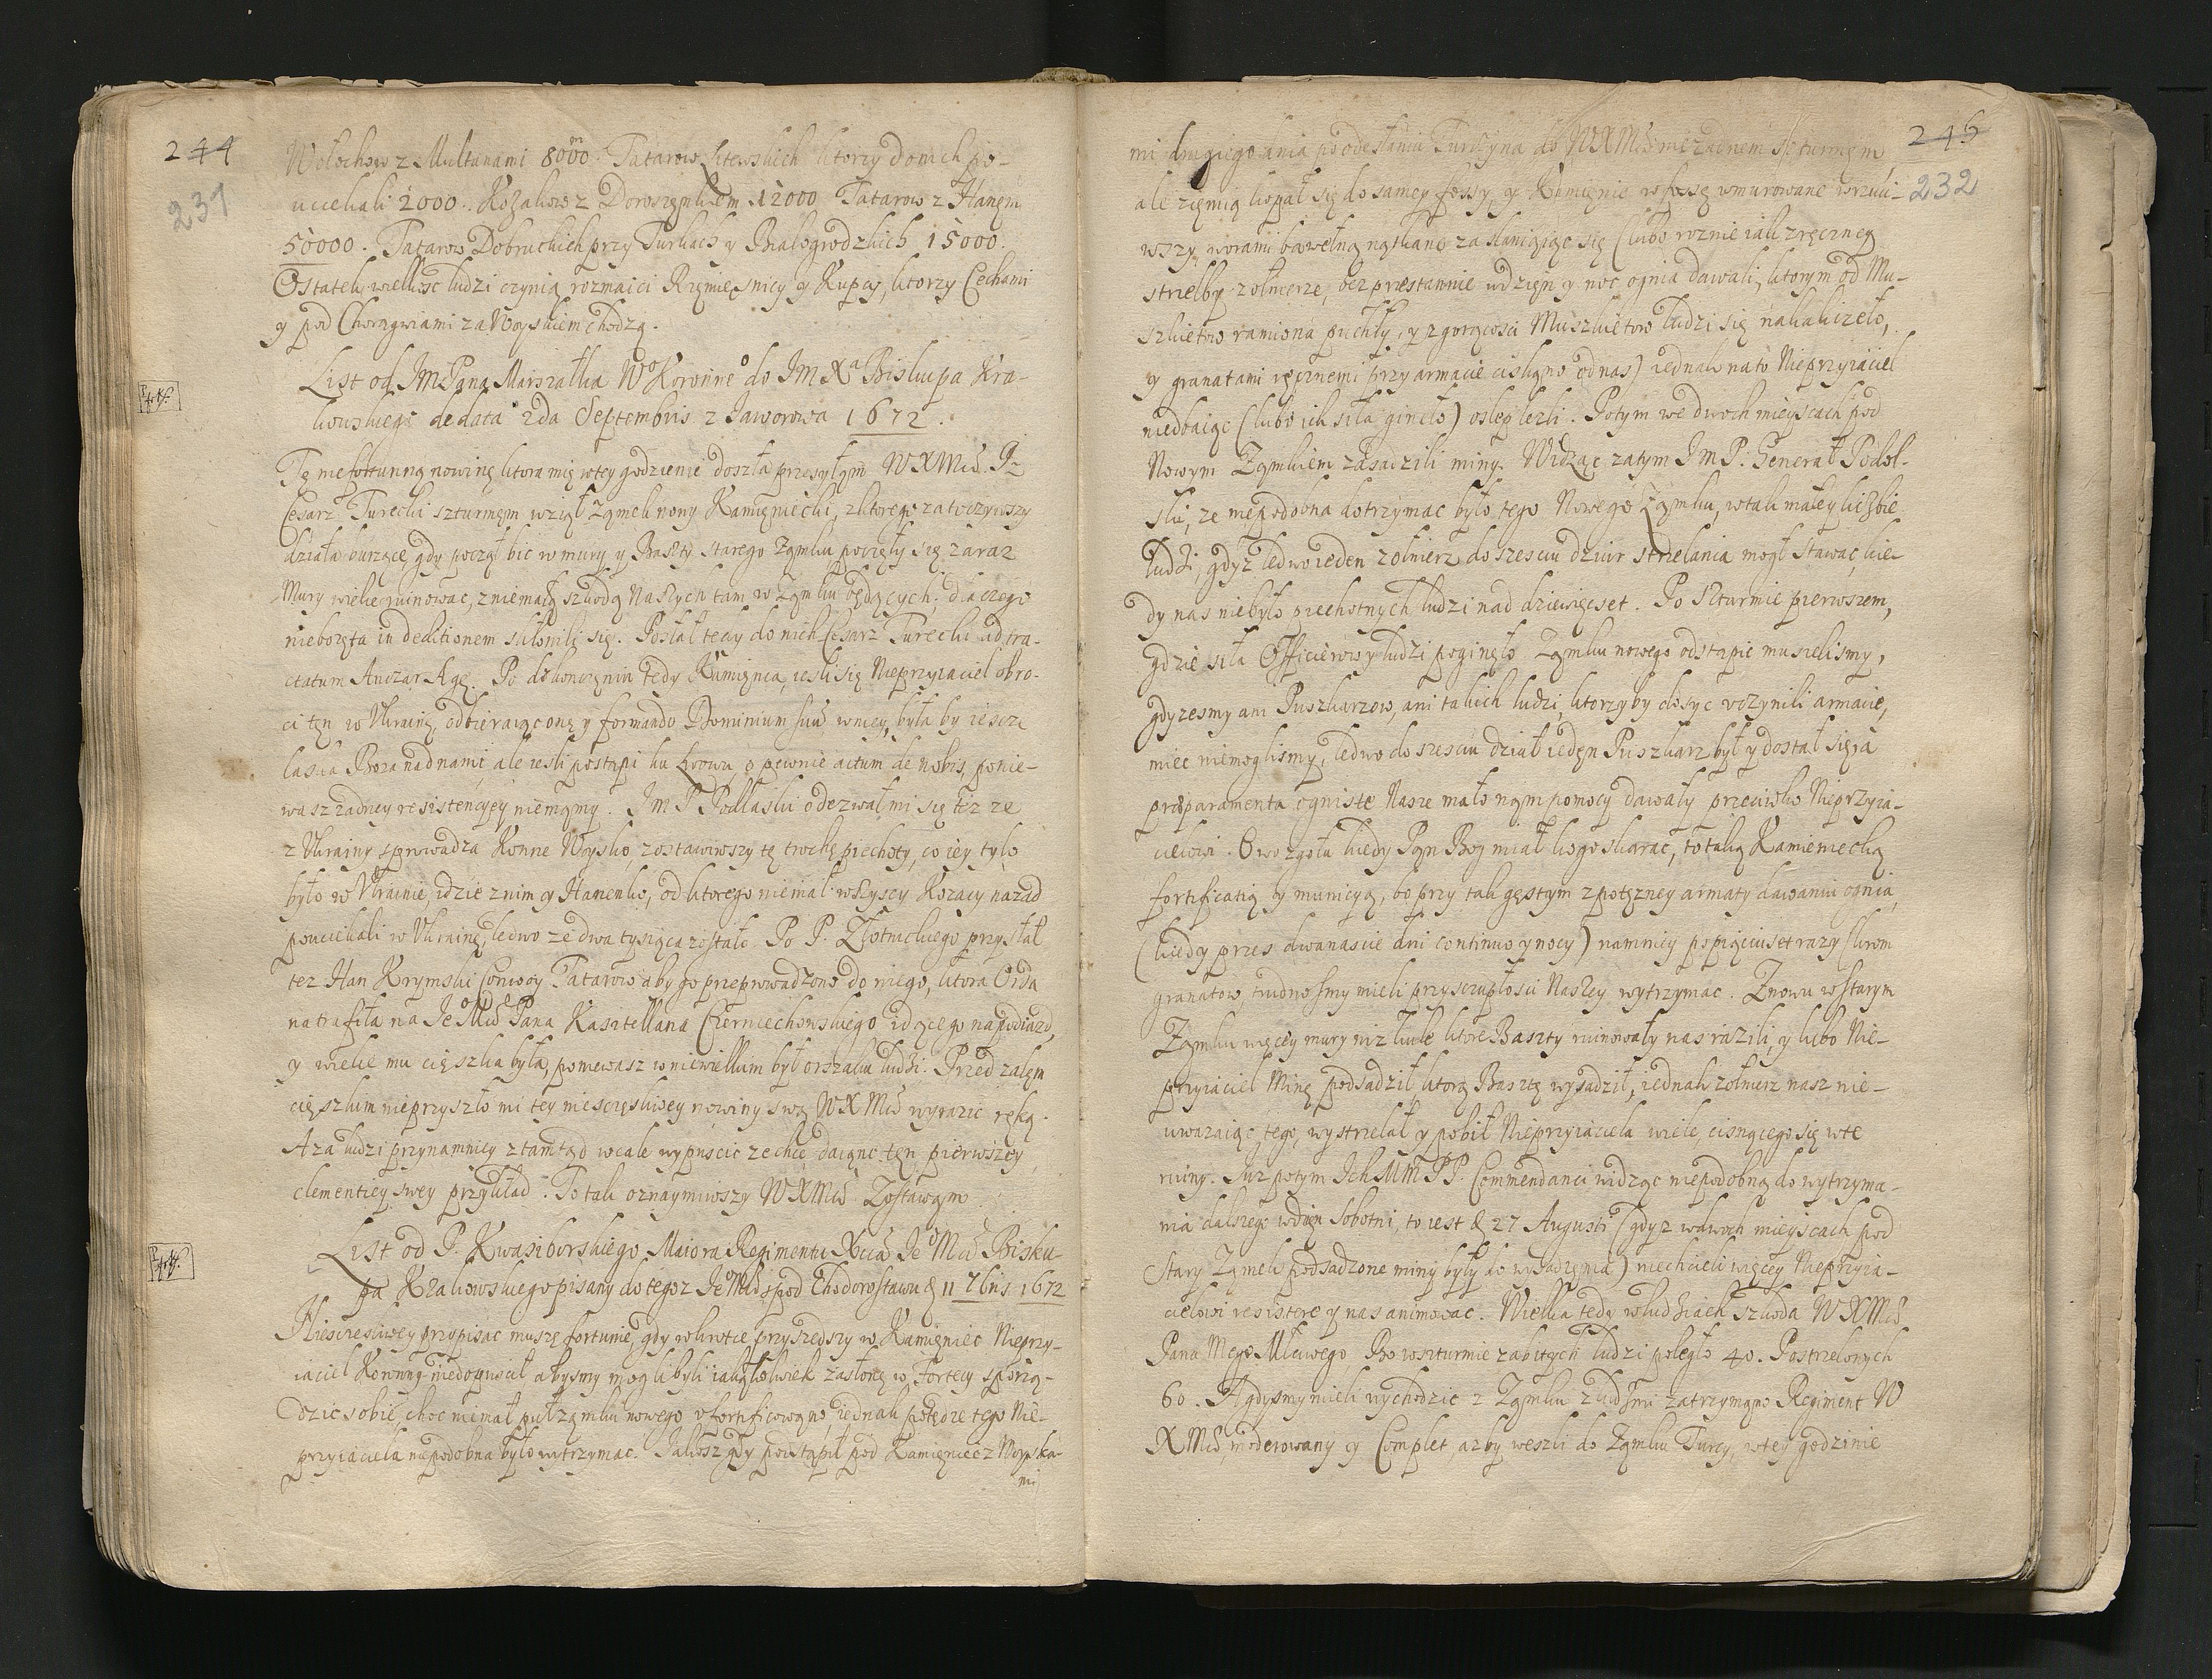 244
231
Wołochow z Multanami 8000. Tatarow Litewskich ktorzy do nich po-
uciekali 2000. Kozakow z Doroszenkiem 12000 Tatarow z Hanem
50000. Tatarow Dobruckich przy Turkach y Białogrodzkich 15000.
Ostatek wielkosc ludzi czynią rozmaici Rzemiesnicy y Kupcy, ktorzy Cechami
y pod Chorągwiami za Woyskiem chodzą.
List od JM Pana Marszałka Wo Koronneo do JM Xa Biskupa Kra-
kowskiego de data 2da Septembris z Jaworowa 1672.
Tę niefortunną nowinę ktora mię w tey godzienie doszła przesyłam WXMci. Iz
Cesarz Turecki szturmem wziął Zamek nowy Kamieniecki, z ktorego zatoczywszy
działa burzące, gdy począł bic w mury y Baszty starego Zamku, poczęły się zaraz
Mury wielce ruinowac, z niemałą szkodą Naszych tam w Zamku będących; dla czego
nieboręta in deditionem skłonili się. Posłał tedy do nich Cesarz Turecki ad tra-
ctatum Auszar Agę. Po dokonczeniu tedy Kamienca, iesli się Nieprzyiaciel obro-
ci ten w Ukrainę, odbieraiąc onę y formando Dominium suum w niey, była by ieszcze
łaska Boza nad nami, ale iesli postąpi ku Lwowu, o pewnie actum de nobis, ponie-
wasz zadney resistencyey niemamy. Jm P Podlaski odezwał mi się tez ze
z Ukrainy sprowadza Konne Woysko, zostawiwszy tę trochę piechoty, co iey tylo
było w Ukrainie, idzie z nim y Hanenko, od ktorego niemal wszyscy Kozacy nazad
pouciekali w Ukrainę, ledwo ze dwa tysiąca zostało. Po P. Złotnickiego przysłał
tez Han Krymski Convoy Tatarow aby go przeprowadzono do niego, ktora Orda
natrafiła na Jeo Mci Pana Kasztellana Czerniechowskiego idącego na podiazd,
y wielce mu cięszka była, poniewasz w niewielkim był orszaku ludzi. Przed zalem
cięszkim nieprzyszło mi tey niesczęsliwey nowiny swą WXMci wyrazic ręką.
Aza ludzi przynamniey ztamtąd wcale wypuscic zechce, daiąc ten pierwszey
clementiey swey przykład. To tak oznaymiwszy WXMci Zostawam
List od P. Kwasiborskiego Maiora Regimentu Xcia Jeo Mci Bisku-
pa Krakowskiego pisany do tegoz Jeo Mci, spod Chodorostawu d 11 7bris 1672
Niesczesliwey przypisac muszę fortunie, gdy wkrotce przyszedszy w Kamieniec Nieprzy-
iaciel Koronny niedopuscił abysmy mogli byli iakążkolwiek zasłonę w Fortecy sporzą-
dzic sobie, choc niemal puł zamku nowego ufortificowano, iednak potędze tego Nie-
przyiaciela niepodobna było wytrzymac. Jakosz gdy postąpił pod Kamieniec z Woyska-
mi
245
232
mi drugiego dnia po odesłaniu Turczyna do WXMci nie zadnem szturmem
ale ziemią kopał się do samey fossy, y Kamienie w fossę wmurowane wrzuci-
wszy, worami bawełną natkane zasłaniaiąc się (lubo roznie iak z ręczney
strzelby zołnierze, bezprzestannie w dzien y noc ognia dawali, ktorym od Mu-
szkietow ramiona puchły, y z gorącosci Muszkietow ludzi się nakaliczeło,
y granatami ręcznemi przy armacie ciskano od nas) iednak na to Nieprzyiaciel
niedbaiąc (lubo ich siła gineło) oslep lezli. Potym we dwoch mieyscach pod
Nowym Zamkiem zasadzili miny. Widząc zatym Jm P. Generał Podol-
ski, ze niepodobna dotrzymac było tego Nowego Zamku, w tak małey liczbie
ludzi, gdyz ledwo ieden zołnierz do szesciu dziur strzelania mogł stawac, kie-
dy nas niebyło piechotnych ludzi nad dziewięcset. Po szturmie pierwszem,
gdzie siła Officierow y ludzi poginęło Zamku nowego odstąpic musielismy,
gdyzesmy ani Puszkarzow, ani takich ludzi, ktorzyby dosyc uczynili armacie,
miec niemoglismy, ledwo do szesciu dział ieden Puszkarz był y dostał się, a
praeparamenta ogniste Nasze mało nam pomocy dawały przeciwko Nieprzyia-
cielowi. Owo zgoła kiedy Pan Bog miał kogo skarac, to taką Kamieniecką
fortificatią y municyą, bo przy tak gęstym z potęzney armaty dawaniu ognia,
(kiedy przes dwanascie dni continuo y nocy) namniey po pięciuset razy (krom
granatow, trudnosmy mieli przy sczupłosci Naszey wytrzymac. Znowu w starym
Zamku więcey mury niz kule ktore Baszty ruinowały nas razili, y lubo Nie-
przyiaciel Minę podsadził, ktorą Basztę wysadził, iednak zołnierz nasz nie-
uwazaiąc tego, wystrzelał y pobił Nieprzyiaciela wiele, cisnącego się w te
ruiny. Iuz potym Ich MM PP. Commendanci widząc niepodobną do wytrzyma-
nia dalszego w dzien Sobotni, to iest d 27 Augusti (gdyz w dwoch mieyscach pod
Stary Zamek podsadzone miny były do wysadzenia) niechcieli więcey Nieprzyia-
cielowi resistere y nas animowac. Wielka tedy w ludziach szkoda WXMci
Pana Mego Mciwego, Bo w szturmie zabitych ludzi poległo 40. Postrzelonych
60. A gdysmy mieli wychodzic z Zamku z ludzmi zatrzymano Regiment W
XMci, moderowany y Complet, azby weszli do Zamku Turcy, w tey godzinie